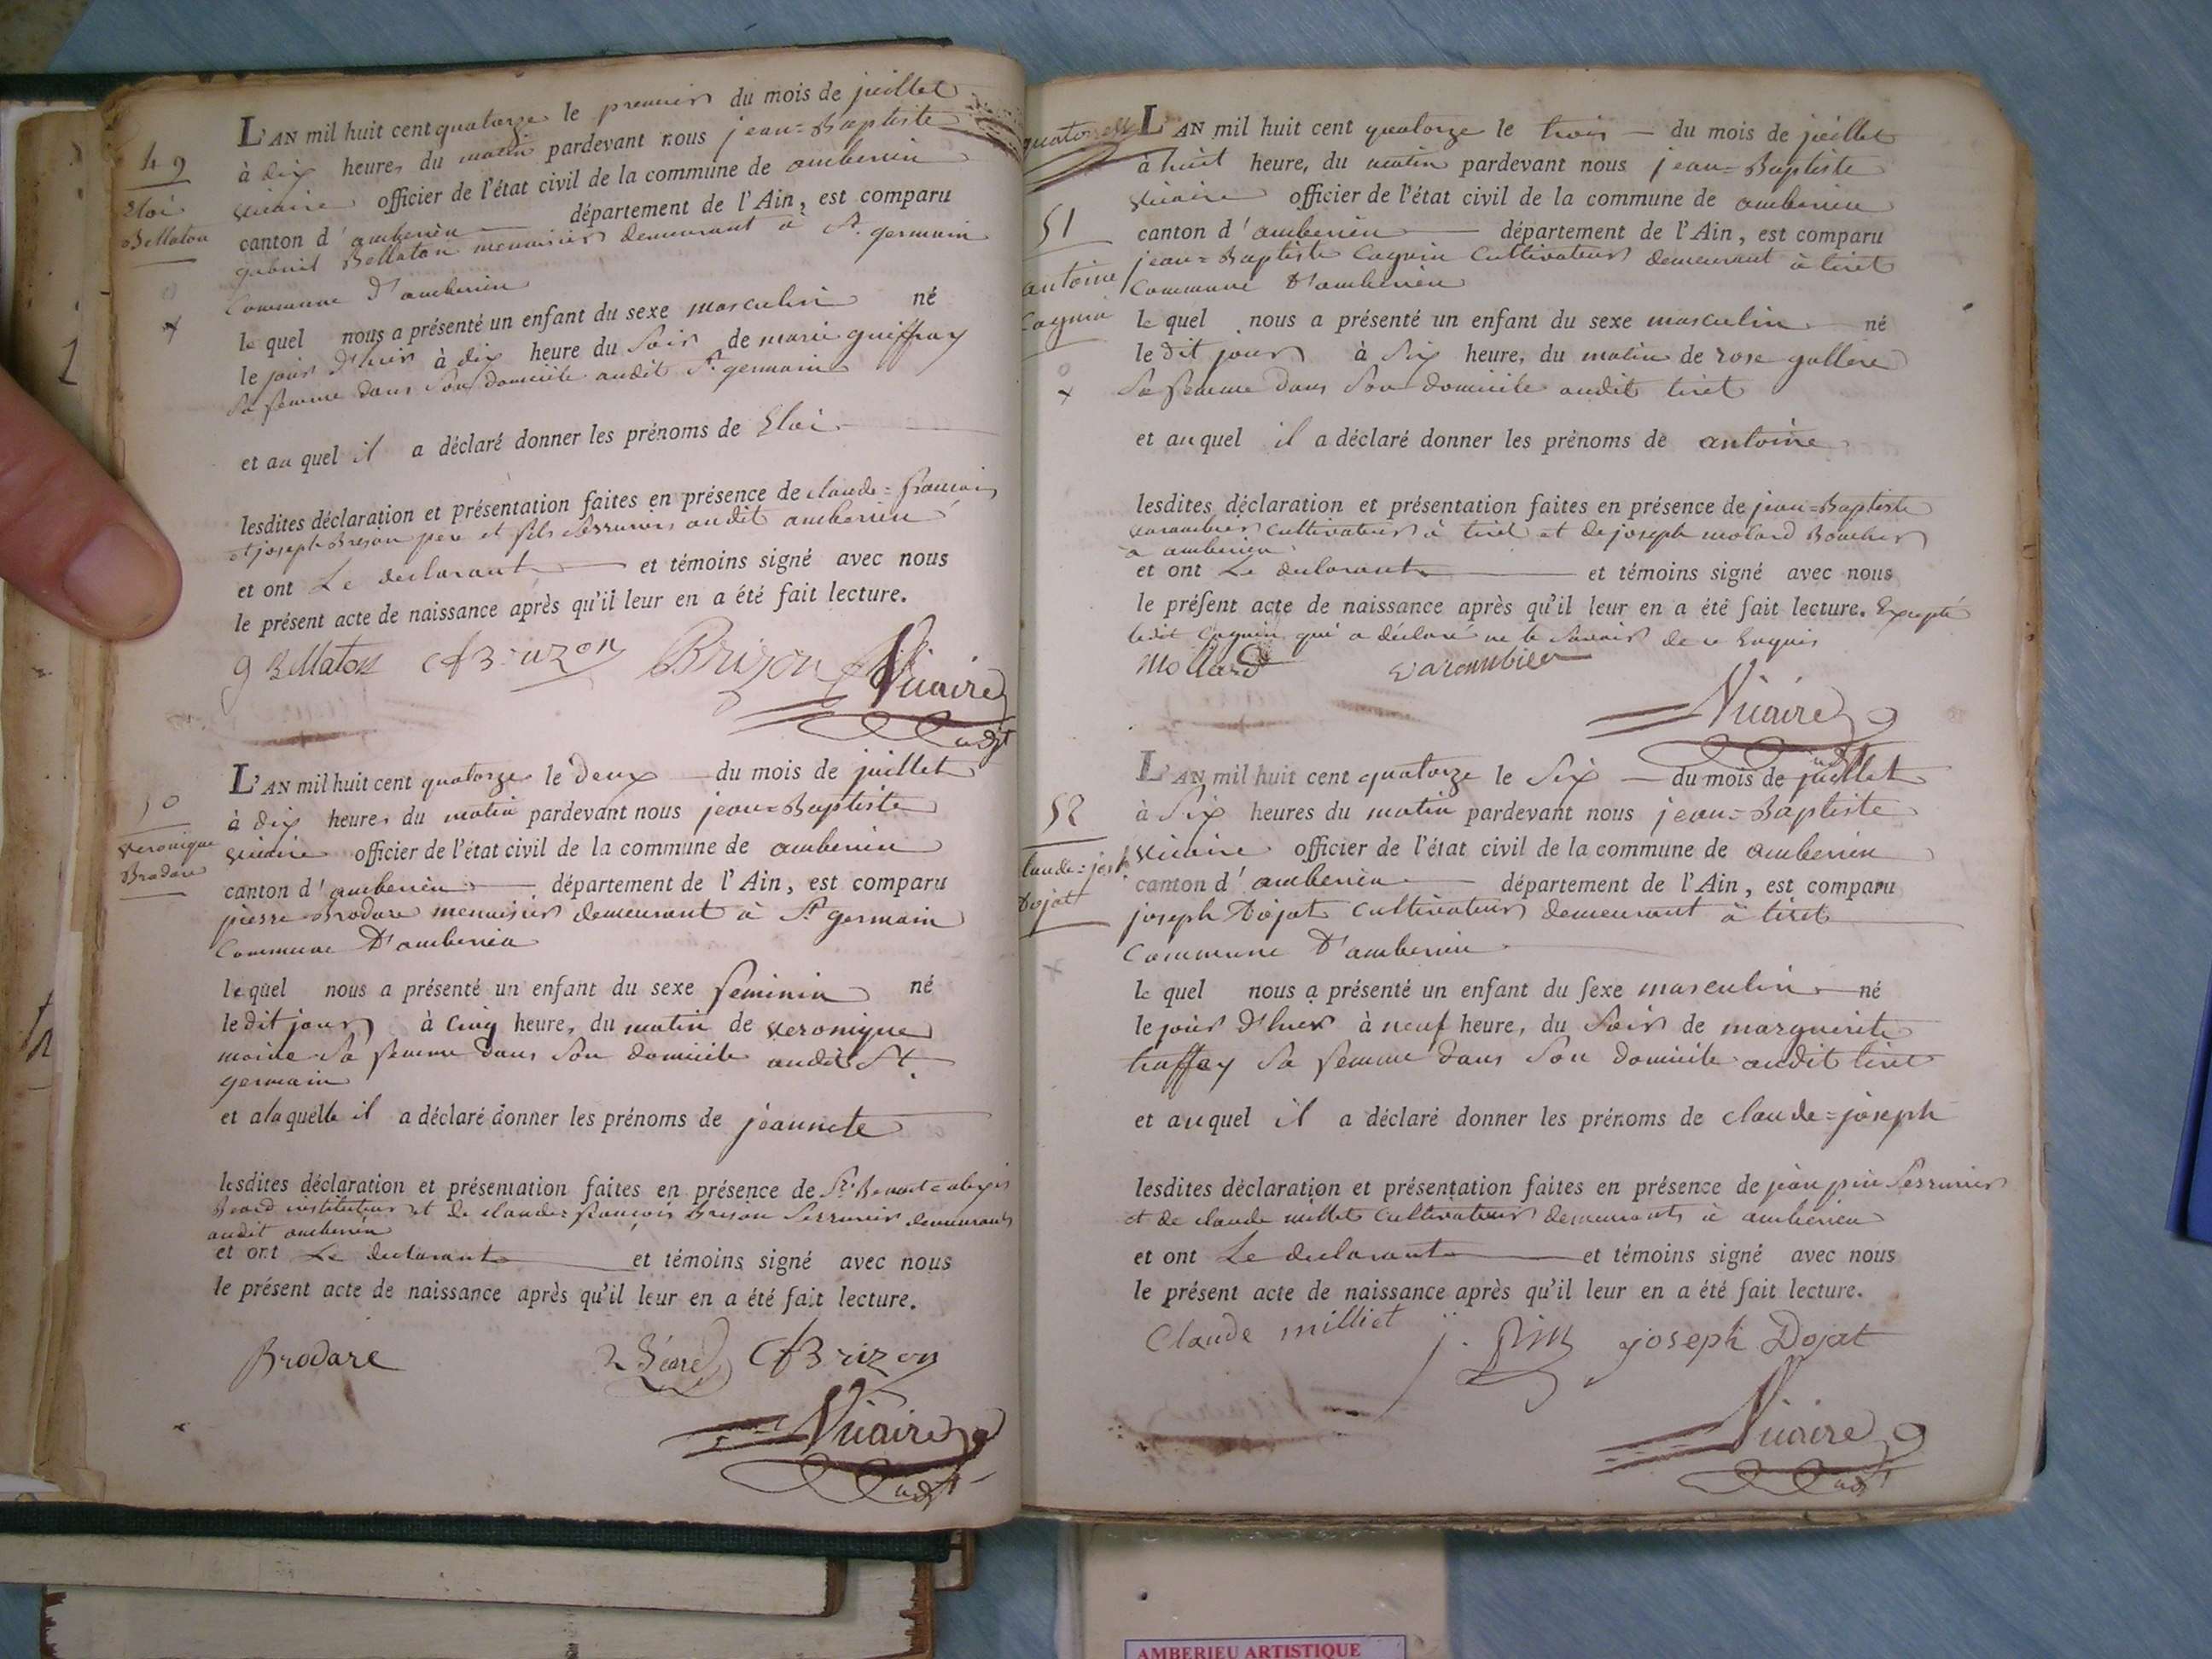 L'AN mil huit cent quatorze le premier du mois de juillet
à dix heures du matin pardevant nous jean=Baptiste
Vicaire officier de l'état civil de la commune de amberieu
canton d'amberieu département de l'Ain, est comparu
gabriel Bellaton menuisier demeurant à St. germain
Commune d'amberieu
le quel nous a présenté un enfant du sexe masculin né
le jour d'hier à dix heure du soir de marie guiffray
sa femme dans son domicile audit St. germain
et au quel il a déclaré donner les prénoms de Eloi
lesdites déclaration et présentation faites en présence de claude=francois
et joseph Brison pere et fils serruriers audit amberieu
et ont Le declarant et témoins signé avec nous
le présent acte de naissance après qu'il leur en a été fait lecture.
g Bellaton Brizon Brizon Vicaire
adjt
49
Eloi
Bellaton
L'AN mil huit cent quatorze le deux du mois de juillet
à dix heures du matin pardevant nous jean=Baptiste
Vicaire officier de l'état civil de la commune de amberieu
canton d'amberieu département de l'Ain, est comparu
pierre Brodare menuisier demeurant à St germain
Commune d'amberieu
le quel nous a présenté un enfant du sexe feminin né
le dit jour à cinq heure, du matin de veronique
moine sa femme dans son domicile audit St.
germain
et a laquelle il a déclaré donner les prénoms de jeannete
lesdites déclaration et présentation faites en présence de Sr. Benoit=alexis
Beard instituteur et de claude=francois Brison serrurier demeurants
audit amberieu
et ont Le declarant et témoins signé avec nous
le présent acte de naissance après qu'il leur en a été fait lecture.
Brodare Béard Brizon
Vicaire
adjt
50
veronique
Brodare
quatorze
L'AN mil huit cent quatorze le trois du mois de juillet
à huit heure, du matin pardevant nous jean=Baptiste
Vicaire officier de l'état civil de la commune de amberieu
canton d'amberieu département de l'Ain, est comparu
jean=Baptiste Cagnin Cultivateur demeurant à tiret
Commune d'amberieu
le quel nous a présenté un enfant du sexe masculin né
le dit jour à six heure, du matin de rose gallere
sa femme dans son domicile audit tiret
et au quel il a déclaré donner les prénoms de antoine
lesdites déclaration et présentation faites en présence de jean=Baptiste
varambier cultivateur à tiret et de joseph molard Boucher
a amberieu
et ont Le declarant et témoins signé avec nous
le présent acte de naissance après qu'il leur en a été fait lecture. Excepté
ledit Cagnin qui a déclaré ne le savoir de ce Enquis
Mollard varambier
Vicaire
adjt
51
antoine
Cagnin
L'AN mil huit cent quatorze le six du mois de juillet
à six heures du matin pardevant nous jean=Baptiste
Vicaire officier de l'état civil de la commune de amberieu
canton d'amberieu département de l'Ain, est comparu
joseph Dojat Cultivateur demeurant à tiret
Commune d'amberieu
le quel nous a présenté un enfant du sexe masculin né
le jour d'hier à neuf heure, du soir de marguerite
traffay sa femme dans son domicile audit tiret
et au quel il a déclaré donner les prénoms de claude=joseph
lesdites déclaration et présentation faites en présence de jean pin serrurier
et de claude milliet cultivateur demeurants à amberieu
et ont Le declarant et témoins signé avec nous
le présent acte de naissance après qu'il leur en a été fait lecture.
Claude milliet j. Pin joseph Dojat
Vicaire
adjt
52
laude=josh.
Dojat
AMBERIEU ARTISTIQUE